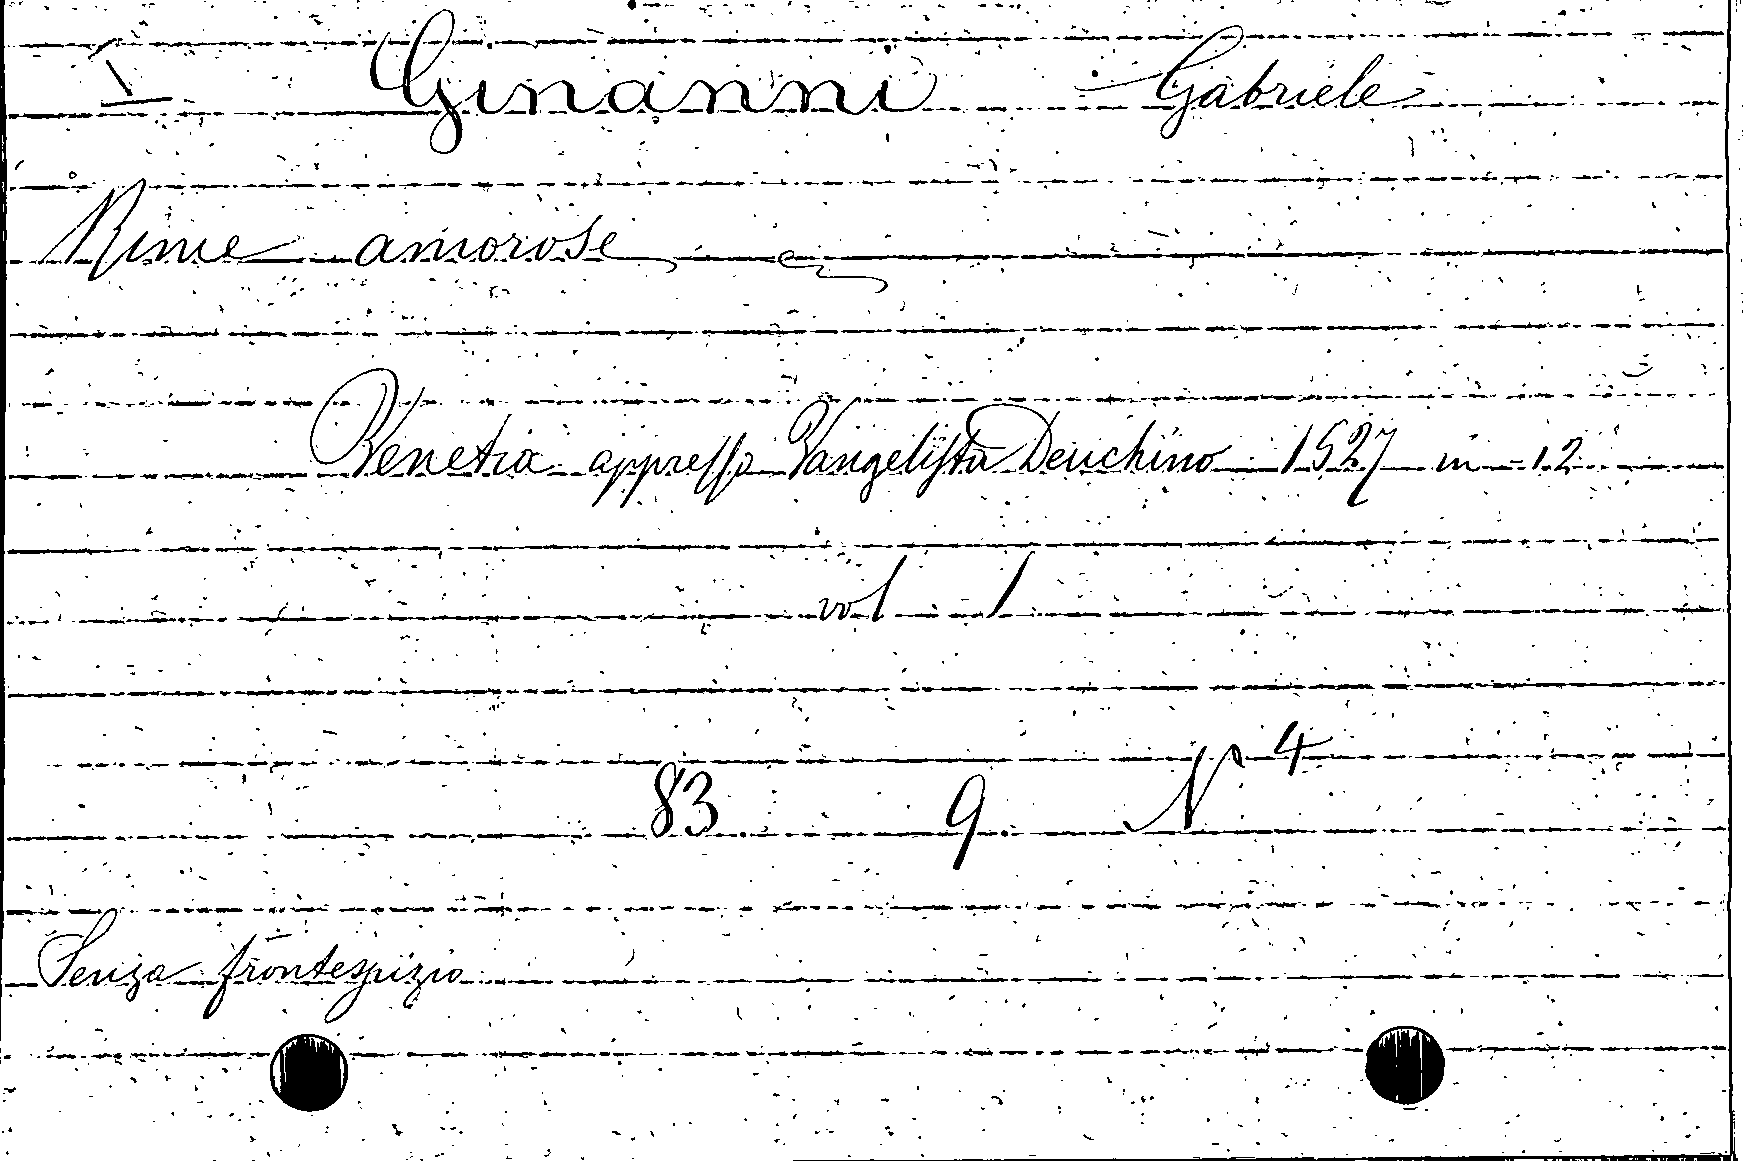 Ginanni - Gabriele
Rime amorose
Venetia appresso Vangelista Deuchino 1527 in 12
vol 1
83 9 N° 4
Senza frontespizio